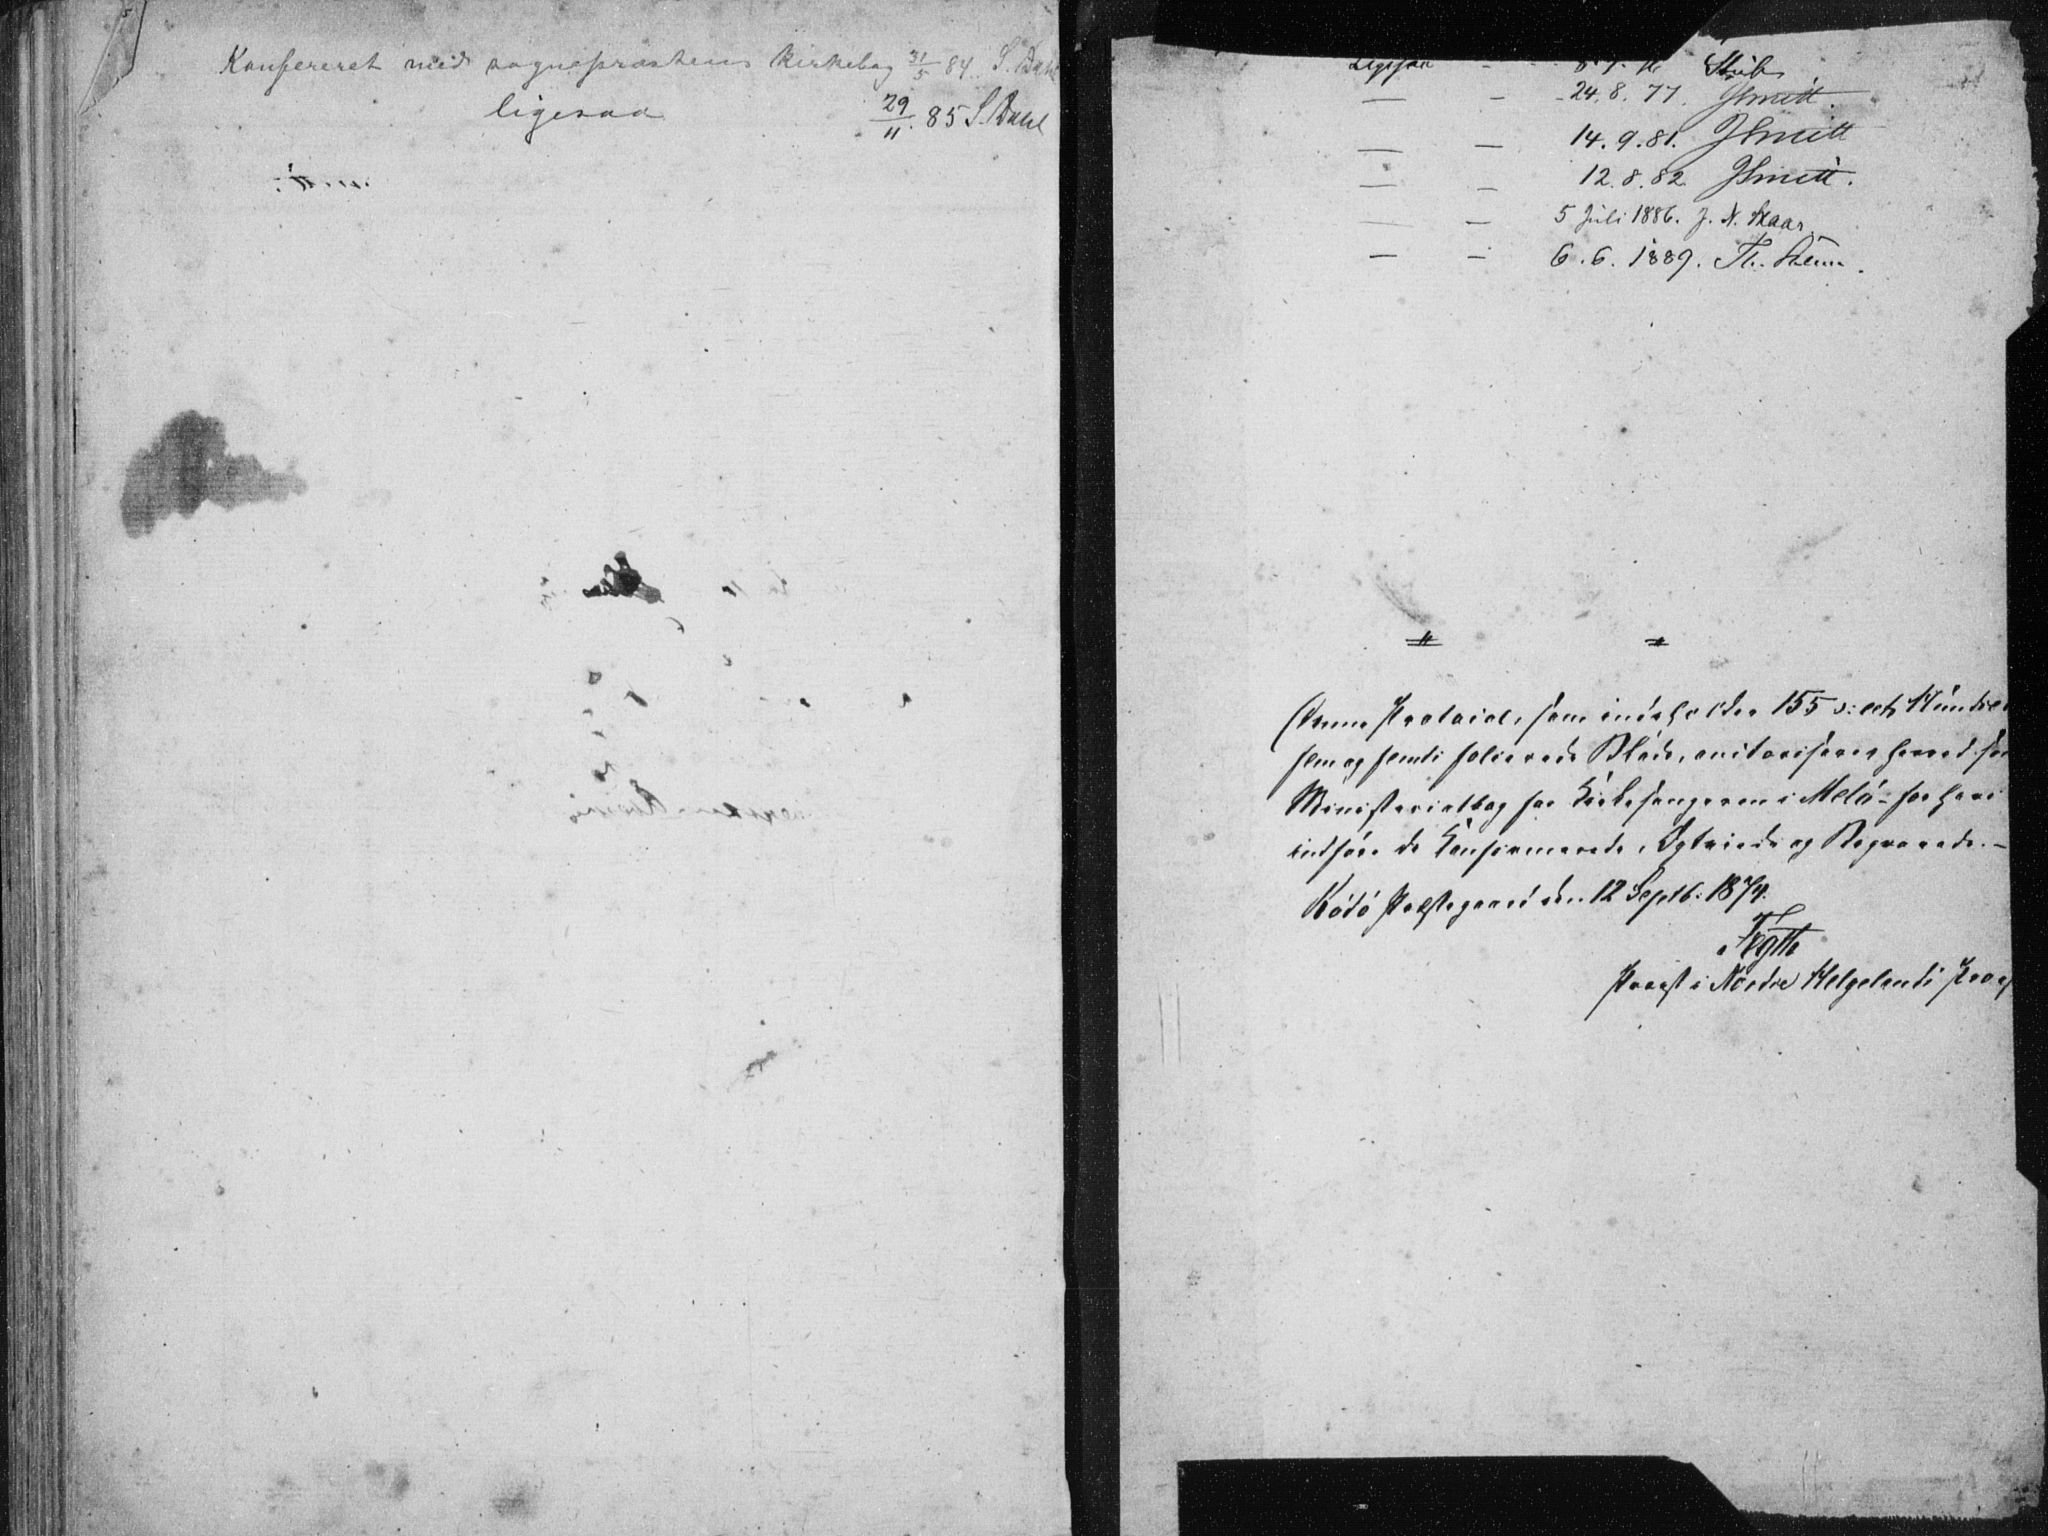 Konfereret med sognepræstens kirkebog 31/5 84. S. Dahl
ligesaa 29/11. 85 S. Dahl
Ligesaa -
— - 24. 8. 77.
— — 14. 9. 81.
— — 12. 8. 82.
— — 5 Juli 1886. J. N. Skaar.
— — 6. 6. 1889. Th.
Denne Protocol, som indeholder 155 o: et Hundre
fem og femti folierede Blade, autoriseres herved som
Ministerialbog for Kirkesangeren i Melø - for heri
indføre de Confirmerede, Egteviede og Begravede. -
Rødø Præstegaard den 12 Septb: 1874.
Provst i Nordre Helgelands